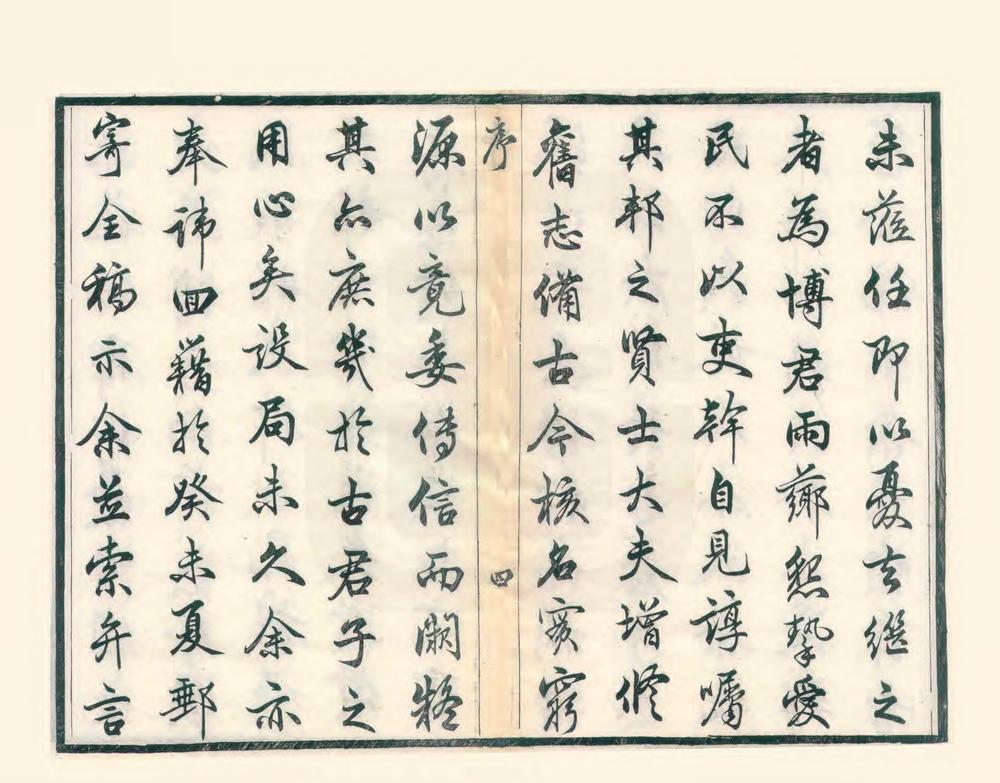 未蒞任即以憂去繼之
者為博君雨薌懇摯愛
民不以吏幹自見諄囑
其邦之賢士大夫增修
舊志備古今核名實窮
序
四
源以竟委傳信而闕疑
其亦庶幾於古君子之
用心矣設局未久余亦
奉諱回籍於癸未夏郵
寄全稿示余並索弁言